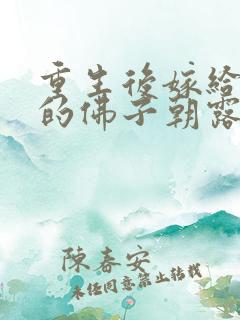 重生后嫁给
的佛子朝露
陳春安
未经同意禁止转载